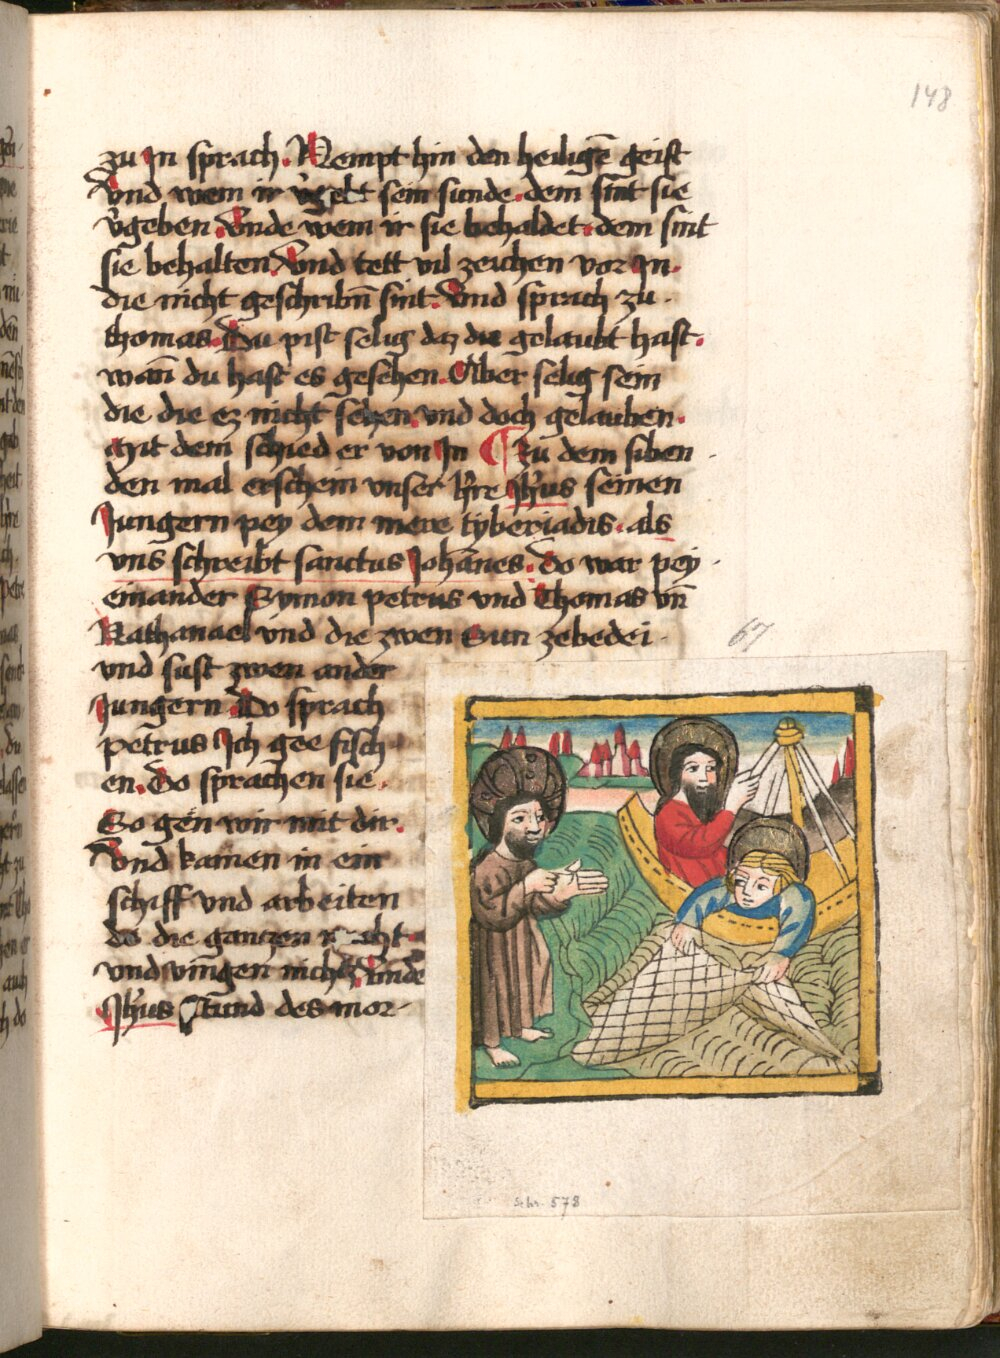 148
zu Jn sprach. Nempt hin den heiligē geist
Vnd wem ir v̉gebt sein sunde. dem sint sie
v̉geben. Vnde wem ir sie behaldet. dem sint
sie behalten. Vnd tett vil zeichen vor Jn.
die nicht geschribn̄ sint. Vnd sprach zu
thomas. Du pist selig daz du gelaubt hast.
wan̄ du hast es gesehen. Aber selig sein
die die ez nicht sehen. vnd doch gelauben.
Mit dem schied er von Jn ¶ Zu dem siben
den mal erschein vnser h̄re Jh̄us seinen
Jungern pey dem mere tyberiadis. als
vns schreibt sanctus Johānes. do war pey
einander Symon petrus vnd Thomas vn̄
Nathanael vnd die zwen Sun zebedei
67
vnd sust zwen ander
Jungern Do sprach
petrus Jch gee fisch
en. Do sprachen sie.
So gen wir mit dir.
Vnd kamen in ein
schiff vnd arbeiten
do die ganczen nacht
vnd vingen nichtz. Vnde
Jh̄us Stund des mor
Schr. 578